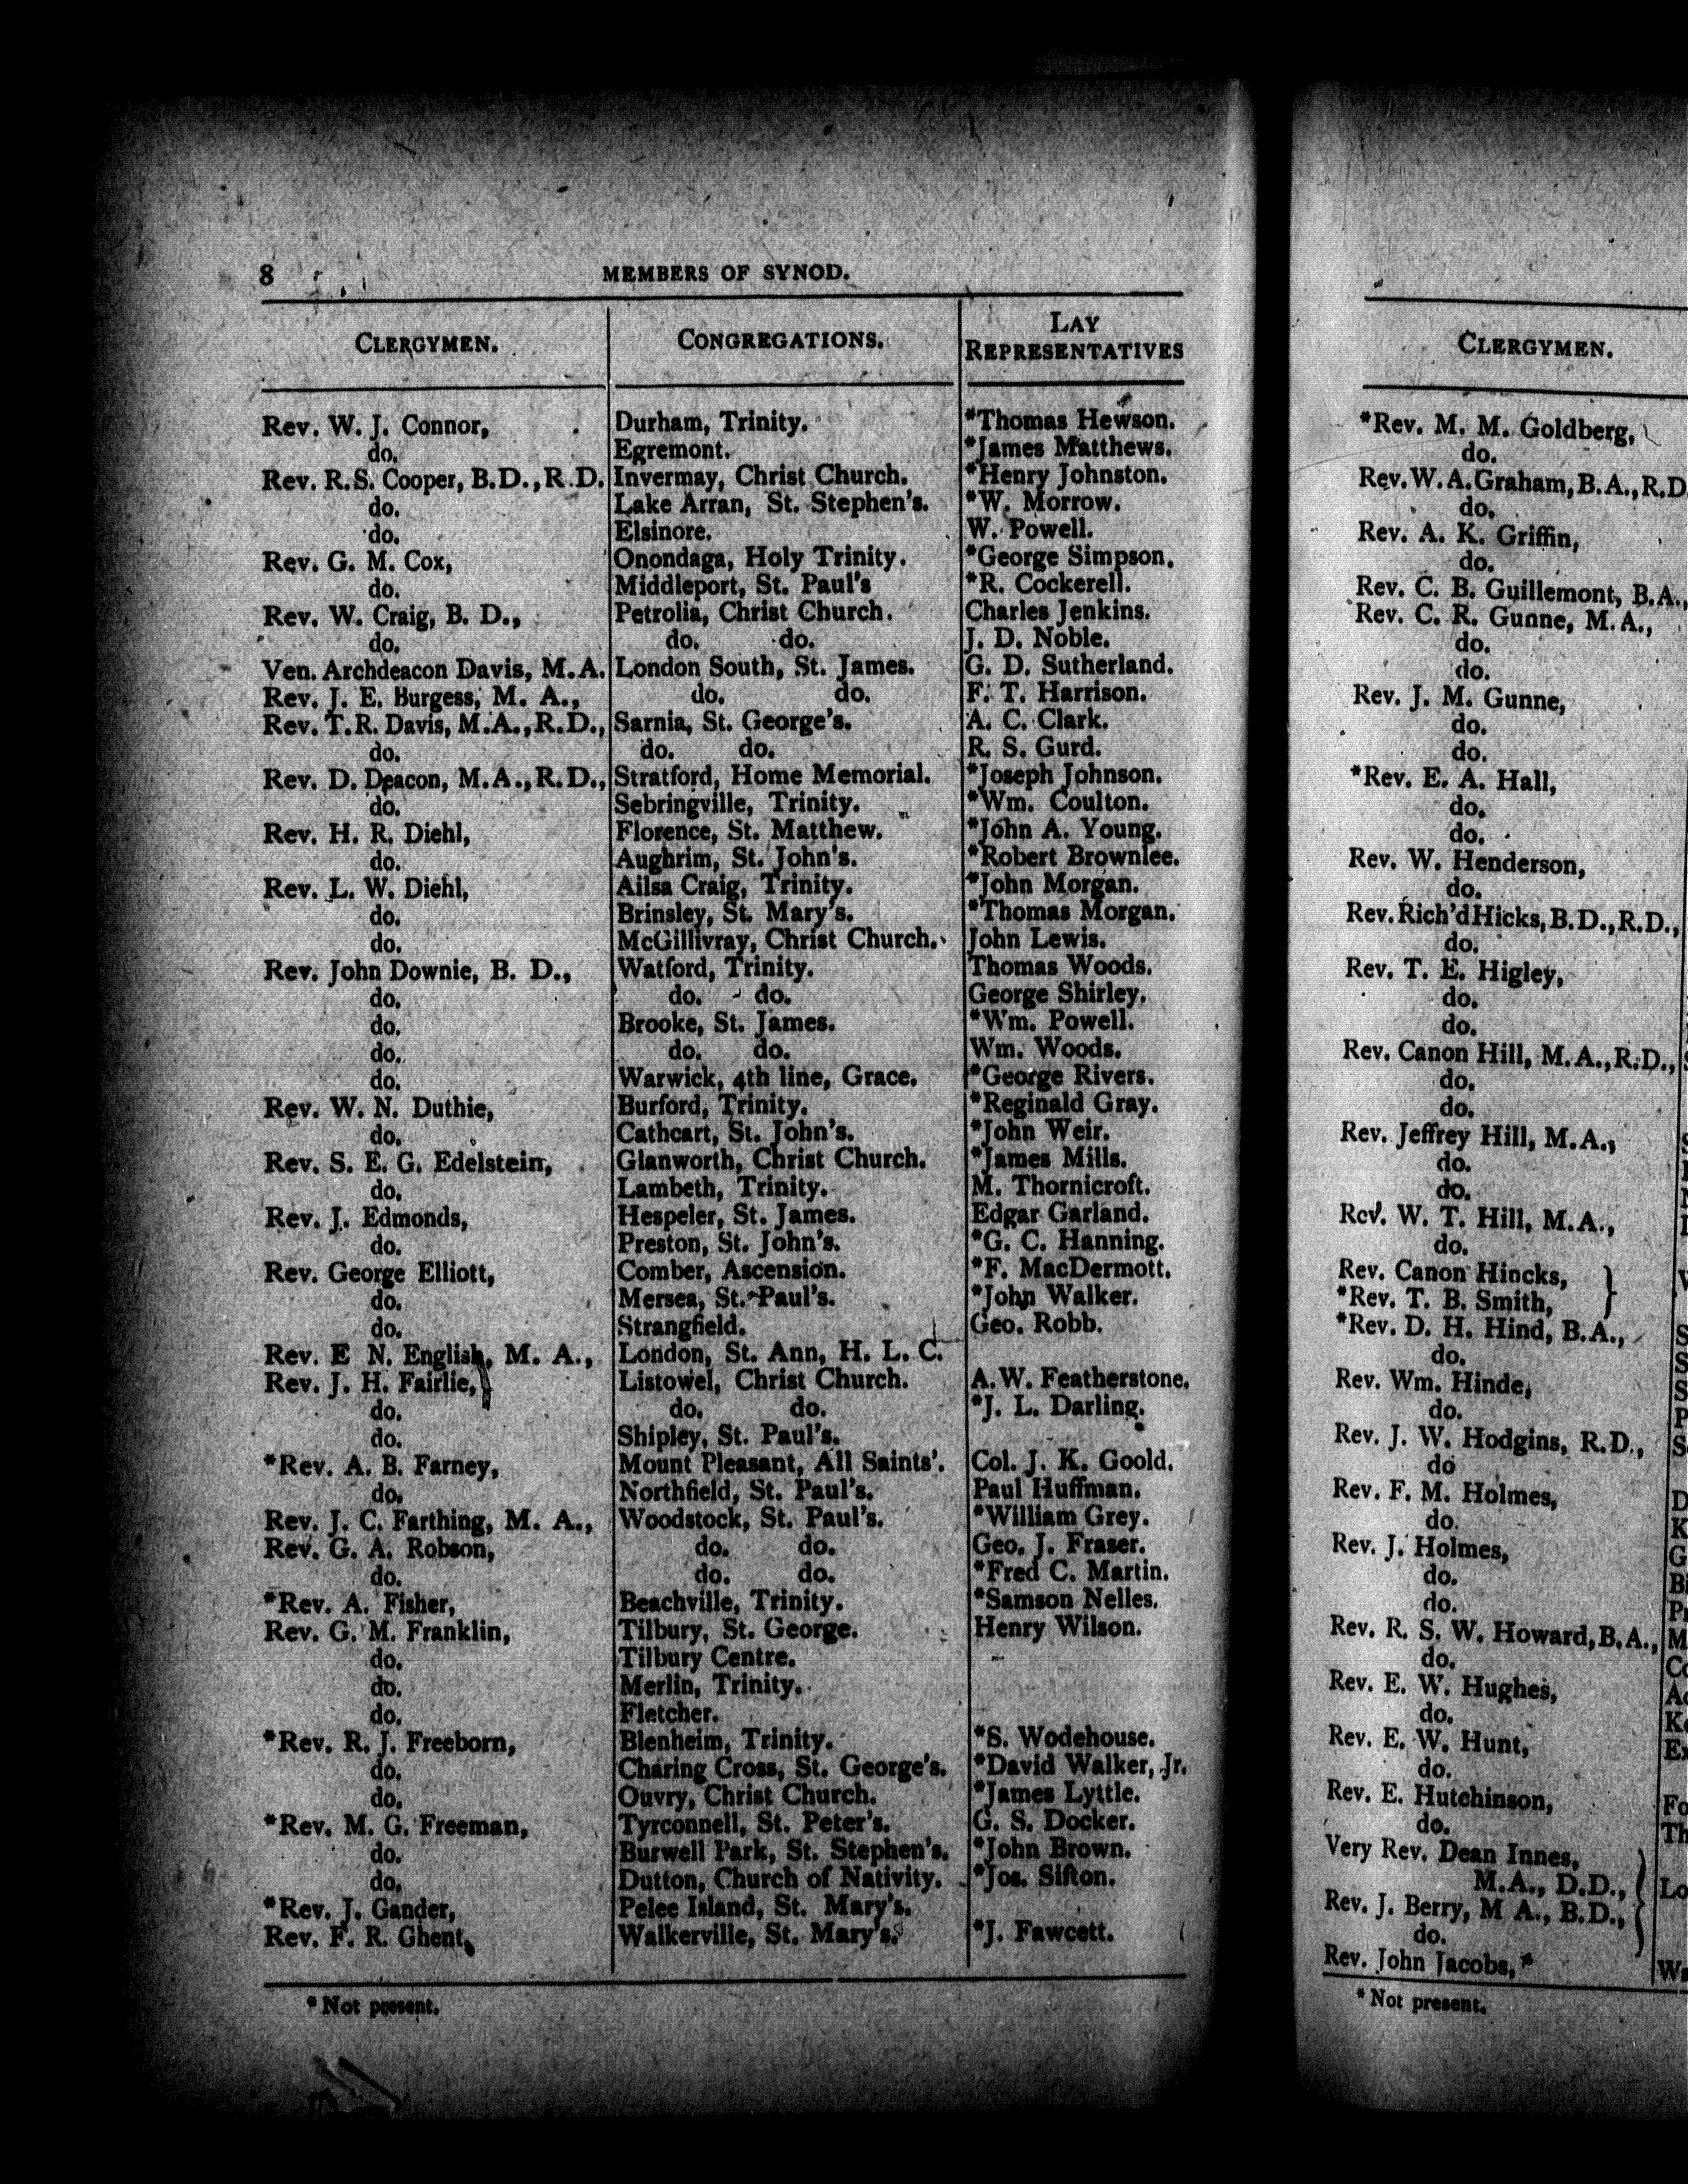 8 MEMBERS OF SYNOD.
CLERGYMEN. CONGREGATIONS. LAY REPRESENTATIVES
Rev. W. J. Connor, Durham, Trinity. *Thomas Hewson.
do. Egremont. *James Matthews.
Rev. R.S. Cooper, B.D., R.D. Invermay, Christ Church. *Henry Johnston.
do. Lake Arran, St. Stephen's. *W. Morrow.
do. Elsinore. W. Powell.
Rev. G. M. Cox, Onondaga, Holy Trinity. *George Simpson.
do. Middleport, St. Paul's *R. Cockerell.
Rev. W. Craig, B. D., Petrolia, Christ Church. Charles Jenkins.
do. do. do. J. D. Noble.
Ven. Archdeacon Davis, M.A. London South, St. James. G. D. Sutherland.
Rev. J. E. Burgess, M. A., do. do. F. T. Harrison.
Rev. T.R. Davis, M.A., R.D., Sarnia, St. George's. A. C. Clark.
do. do. do. R. S. Gurd.
Rev. D. Deacon, M.A., R.D., Stratford, Home Memorial. *Joseph Johnson.
do. Sebringville, Trinity. *Wm. Coulton.
Rev. H. R. Diehl, Florence, St. Matthew. *John A. Young.
do. Aughrim, St. John's. *Robert Brownlee.
Rev. L. W. Diehl, Ailsa Craig, Trinity. *John Morgan.
do. Brinsley, St. Mary's. *Thomas Morgan.
do. McGillivray, Christ Church. John Lewis.
Rev. John Downie, B. D., Watford, Trinity. Thomas Woods.
do. do. do. George Shirley.
do. Brooke, St. James. *Wm. Powell.
do. do. do. Wm. Woods.
do. Warwick, 4th line, Grace. *George Rivers.
Rev. W. N. Duthie, Burford, Trinity. *Reginald Gray.
do. Cathcart, St. John's. *John Weir.
Rev. S. E. G. Edelstein, Glanworth, Christ Church. *James Mills.
do. Lambeth, Trinity. M. Thornicroft.
Rev. J. Edmonds, Hespeler, St. James. Edgar Garland.
do. Preston, St. John's. *G. C. Hanning.
Rev. George Elliott, Comber, Ascension. *F. MacDermott.
do. Mersea, St. Paul's. *John Walker.
do. Strangfield. Geo. Robb.
Rev. E N. English, M. A., London, St. Ann, H. L. C.
Rev. J. H. Fairlie, Listowel, Christ Church. A. W. Featherstone.
do. do. do. *J. L. Darling.
do. Shipley, St. Paul's.
*Rev. A. B. Farney, Mount Pleasant, All Saints'. Col. J. K. Goold.
do. Northfield, St. Paul's. Paul Huffman.
Rev. J. C. Farthing, M. A., Woodstock, St. Paul's. *William Grey.
Rev. G. A. Robson, do. do. Geo. J. Fraser.
do. do. do. *Fred C. Martin.
*Rev. A. Fisher, Beachville, Trinity. *Samson Nelles.
Rev. G. M. Franklin, Tilbury, St. George. Henry Wilson.
do. Tilbury Centre.
do. Merlin, Trinity.
do. Fletcher.
*Rev. R. J. Freeborn, Blenheim, Trinity. *S. Wodehouse.
do. Charing Cross, St. George's. *David Walker, Jr.
do. Ouvry, Christ Church. *James Lyttle.
*Rev. M. G. Freeman, Tyrconnell, St. Peter's. G. S. Docker.
do. Burwell Park, St. Stephen's. *John Brown.
do. Dutton, Church of Nativity. *Jos. Sifton.
*Rev. J. Gander, Pelee Island, St. Mary's.
Rev. F. R. Ghent, Walkerville, St. Mary's. *J. Fawcett.
*Not present.
CLERGYMEN.
*Rev. M. M. Goldberg,
do.
Rev. W. A. Graham, B.A., R.D
do.
Rev. A. K. Griffin,
do.
Rev. C. B. Guillemont, B.A.,
Rev. C. R. Gunne, M.A.,
do.
do.
Rev. J. M. Gunne,
do.
do.
*Rev. E. A. Hall,
do.
do.
Rev. W. Henderson,
do.
Rev. Rich'd Hicks, B.D., R.D.,
do.
Rev. T. E. Higley,
do.
do.
Rev. Canon Hill, M.A., R.D.,
do.
do.
Rev. Jeffrey Hill, M.A.,
do.
do.
Rev. W. T. Hill, M.A.,
do.
Rev. Canon Hincks,
*Rev. T. B. Smith,
*Rev. D. H. Hind, B.A.,
do.
Rev. Wm. Hinde,
do.
Rev. J. W. Hodgins, R.D.,
do
Rev. F. M. Holmes,
do.
Rev. J. Holmes,
do.
do.
Rev. R. S. W. Howard, B.A.,
do.
Rev. E. W. Hughes,
do.
Rev. E. W. Hunt,
do.
Rev. E. Hutchinson,
do.
Very Rev. Dean Innes,
M.A., D.D.,
Rev. J. Berry, M A., B.D.,
do.
Rev. John Jacobs,*
*Not present.